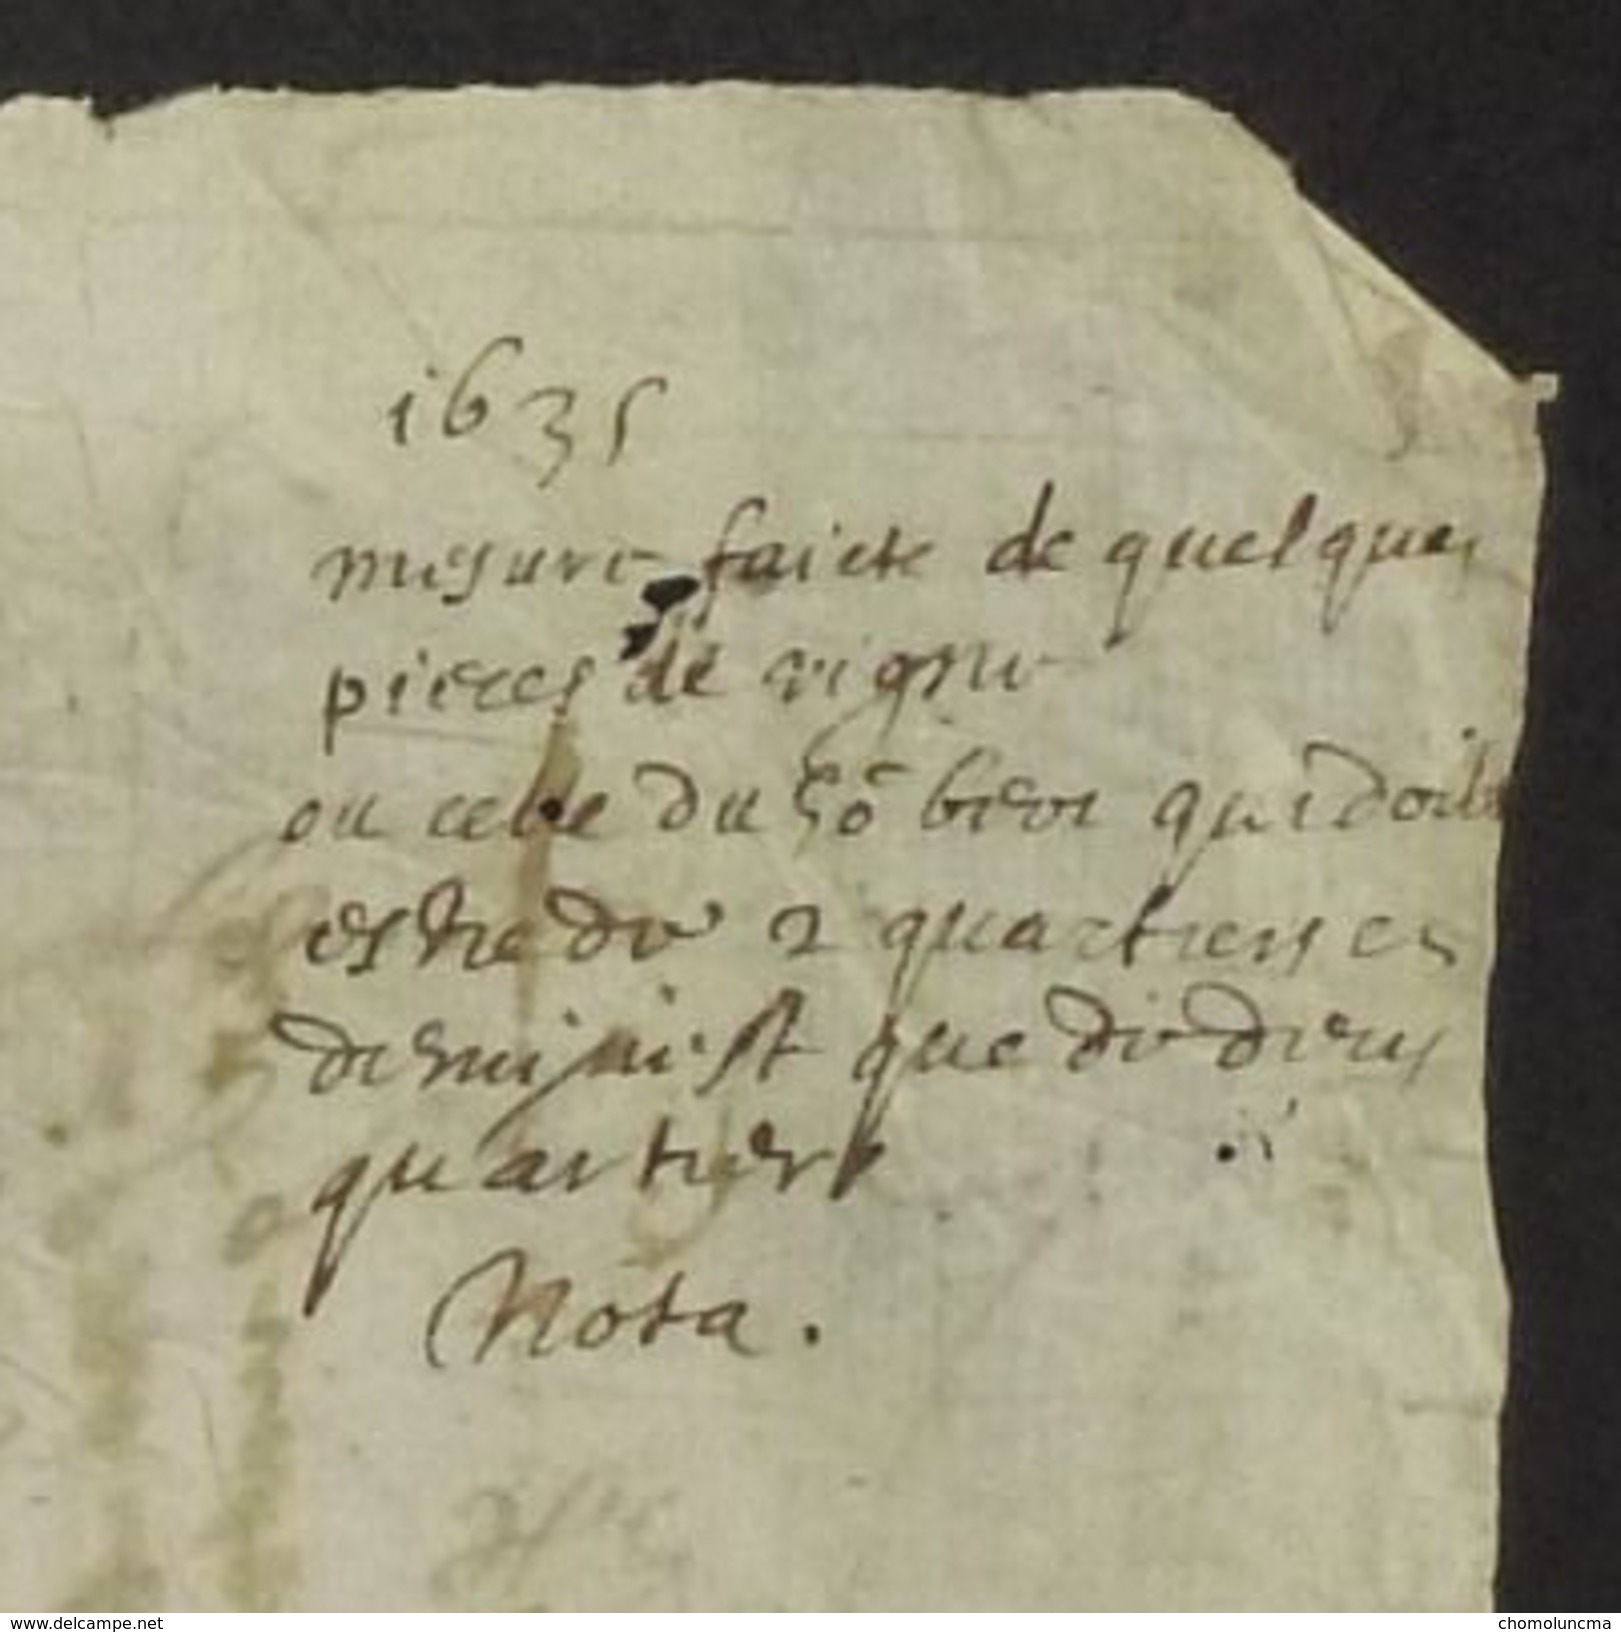 1635
mesure faicte de quelques
pieces de vigne
ou celle du qui doibt
estre de 2 quartiers et
demi n'est que de deux
quartiers
Nota.
www.delcampe.net
chomoluncma